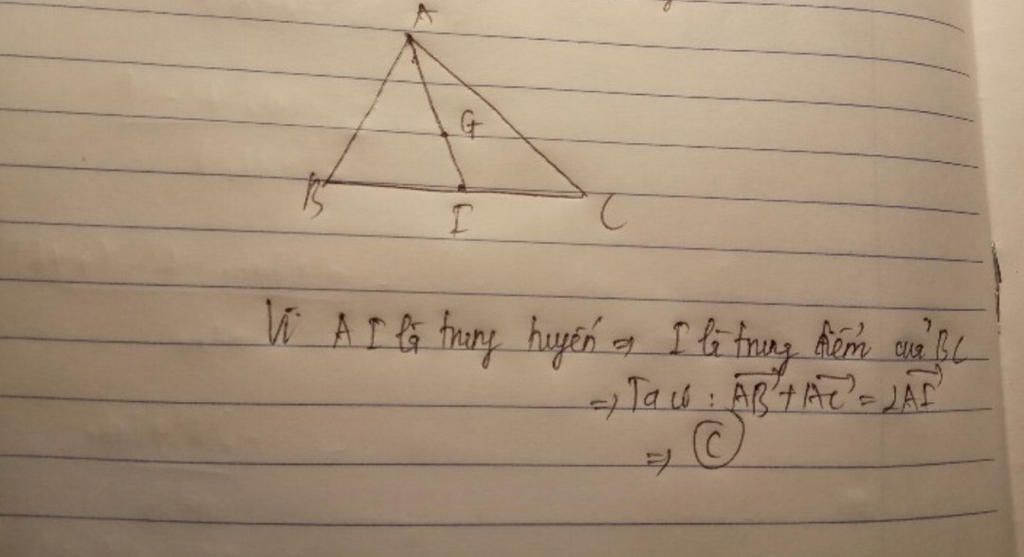 A
G
B
I
C
Vì AI là trung tuyến ⇒ I là trung điểm của BC
⇒ Ta có : $\overrightarrow{AB}+\overrightarrow{AC}=2\overrightarrow{AI}$
⇒ Ⓒ